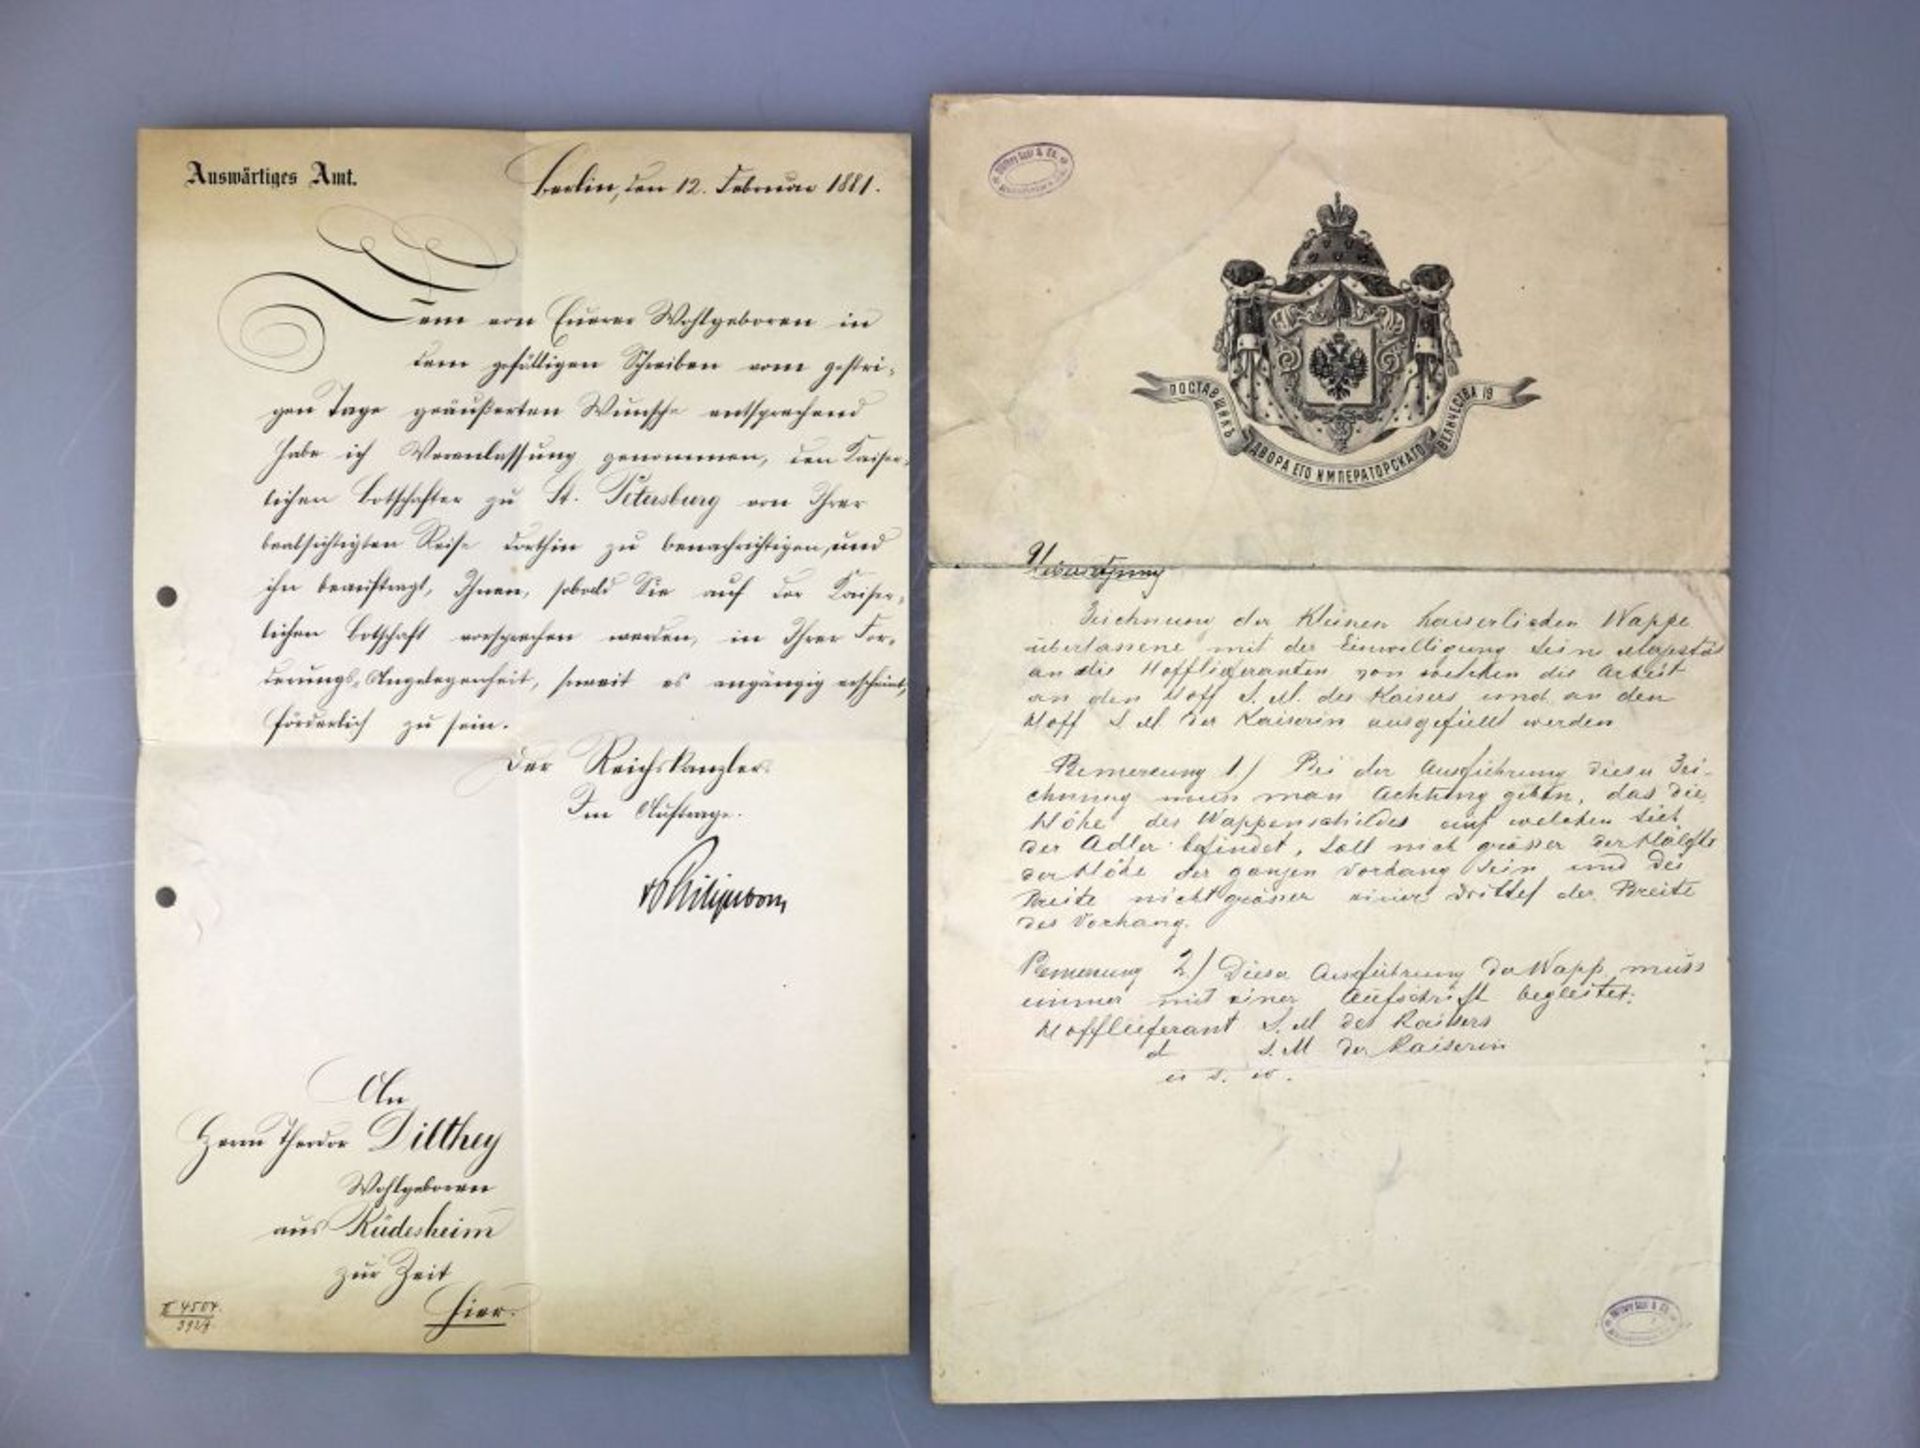 Auswärtiges Amt.
Berlin, den 12. Februar 1881.
Dem von Euerer Wohlgeboren in
dem gefälligen Schreiben vom gestri-
gen Tage geäußerten Wunsche entsprechend
habe ich Veranlassung genommen, den Kaiser-
lichen Botschafter zu St. Petersburg von Ihrer
beabsichtigten Reise dorthin zu benachrichtigen, und
ihn beauftragt, Ihnen, sobald Sie auf der Kaiser-
lichen Botschaft vorsprechen werden, in Ihrer For-
derungs-Angelegenheit, soweit es angängig erscheint,
förderlich zu sein.
Der Reichskanzler.
Im Auftrage.
An
Herrn Theodor Dilthey
Wohlgeboren
aus Rüdesheim
zur Zeit
hier.
II 4504.
ПОСТАВЩИКЪ ДВОРА ЕГО ИМПЕРАТОРСКАГО ВЕЛИЧЕСТВА 19
Zeichnung der Kleinen Kaiserlichen Wappe
überlassene mit der Einwilligung Seine Majestät
an die Hofflieferanten von welchen die Arbeit
an den Hoff S. M. des Kaisers und an den
Hoff S M der Kaiserin ausgefüllt werden
Bemerkung 1) Bei der Ausführung dieser Zei-
chnung muss man Achtung geben, das die
Höhe des Wappenschildes auf welchen sich
der Adler befindet, soll nich grösser der Hälfte
der Höhe der ganzen Vorhang sein und die
Breite nicht grösser einer Drittel der Breite
des Vorhang.
Bemerkung 2) Diese Ausführung der Wapp muss
immer mit einer Aufschrift begleitet:
Hofflieferant S. M des Kaisers
d S. M der Kaiserin
u s. w.